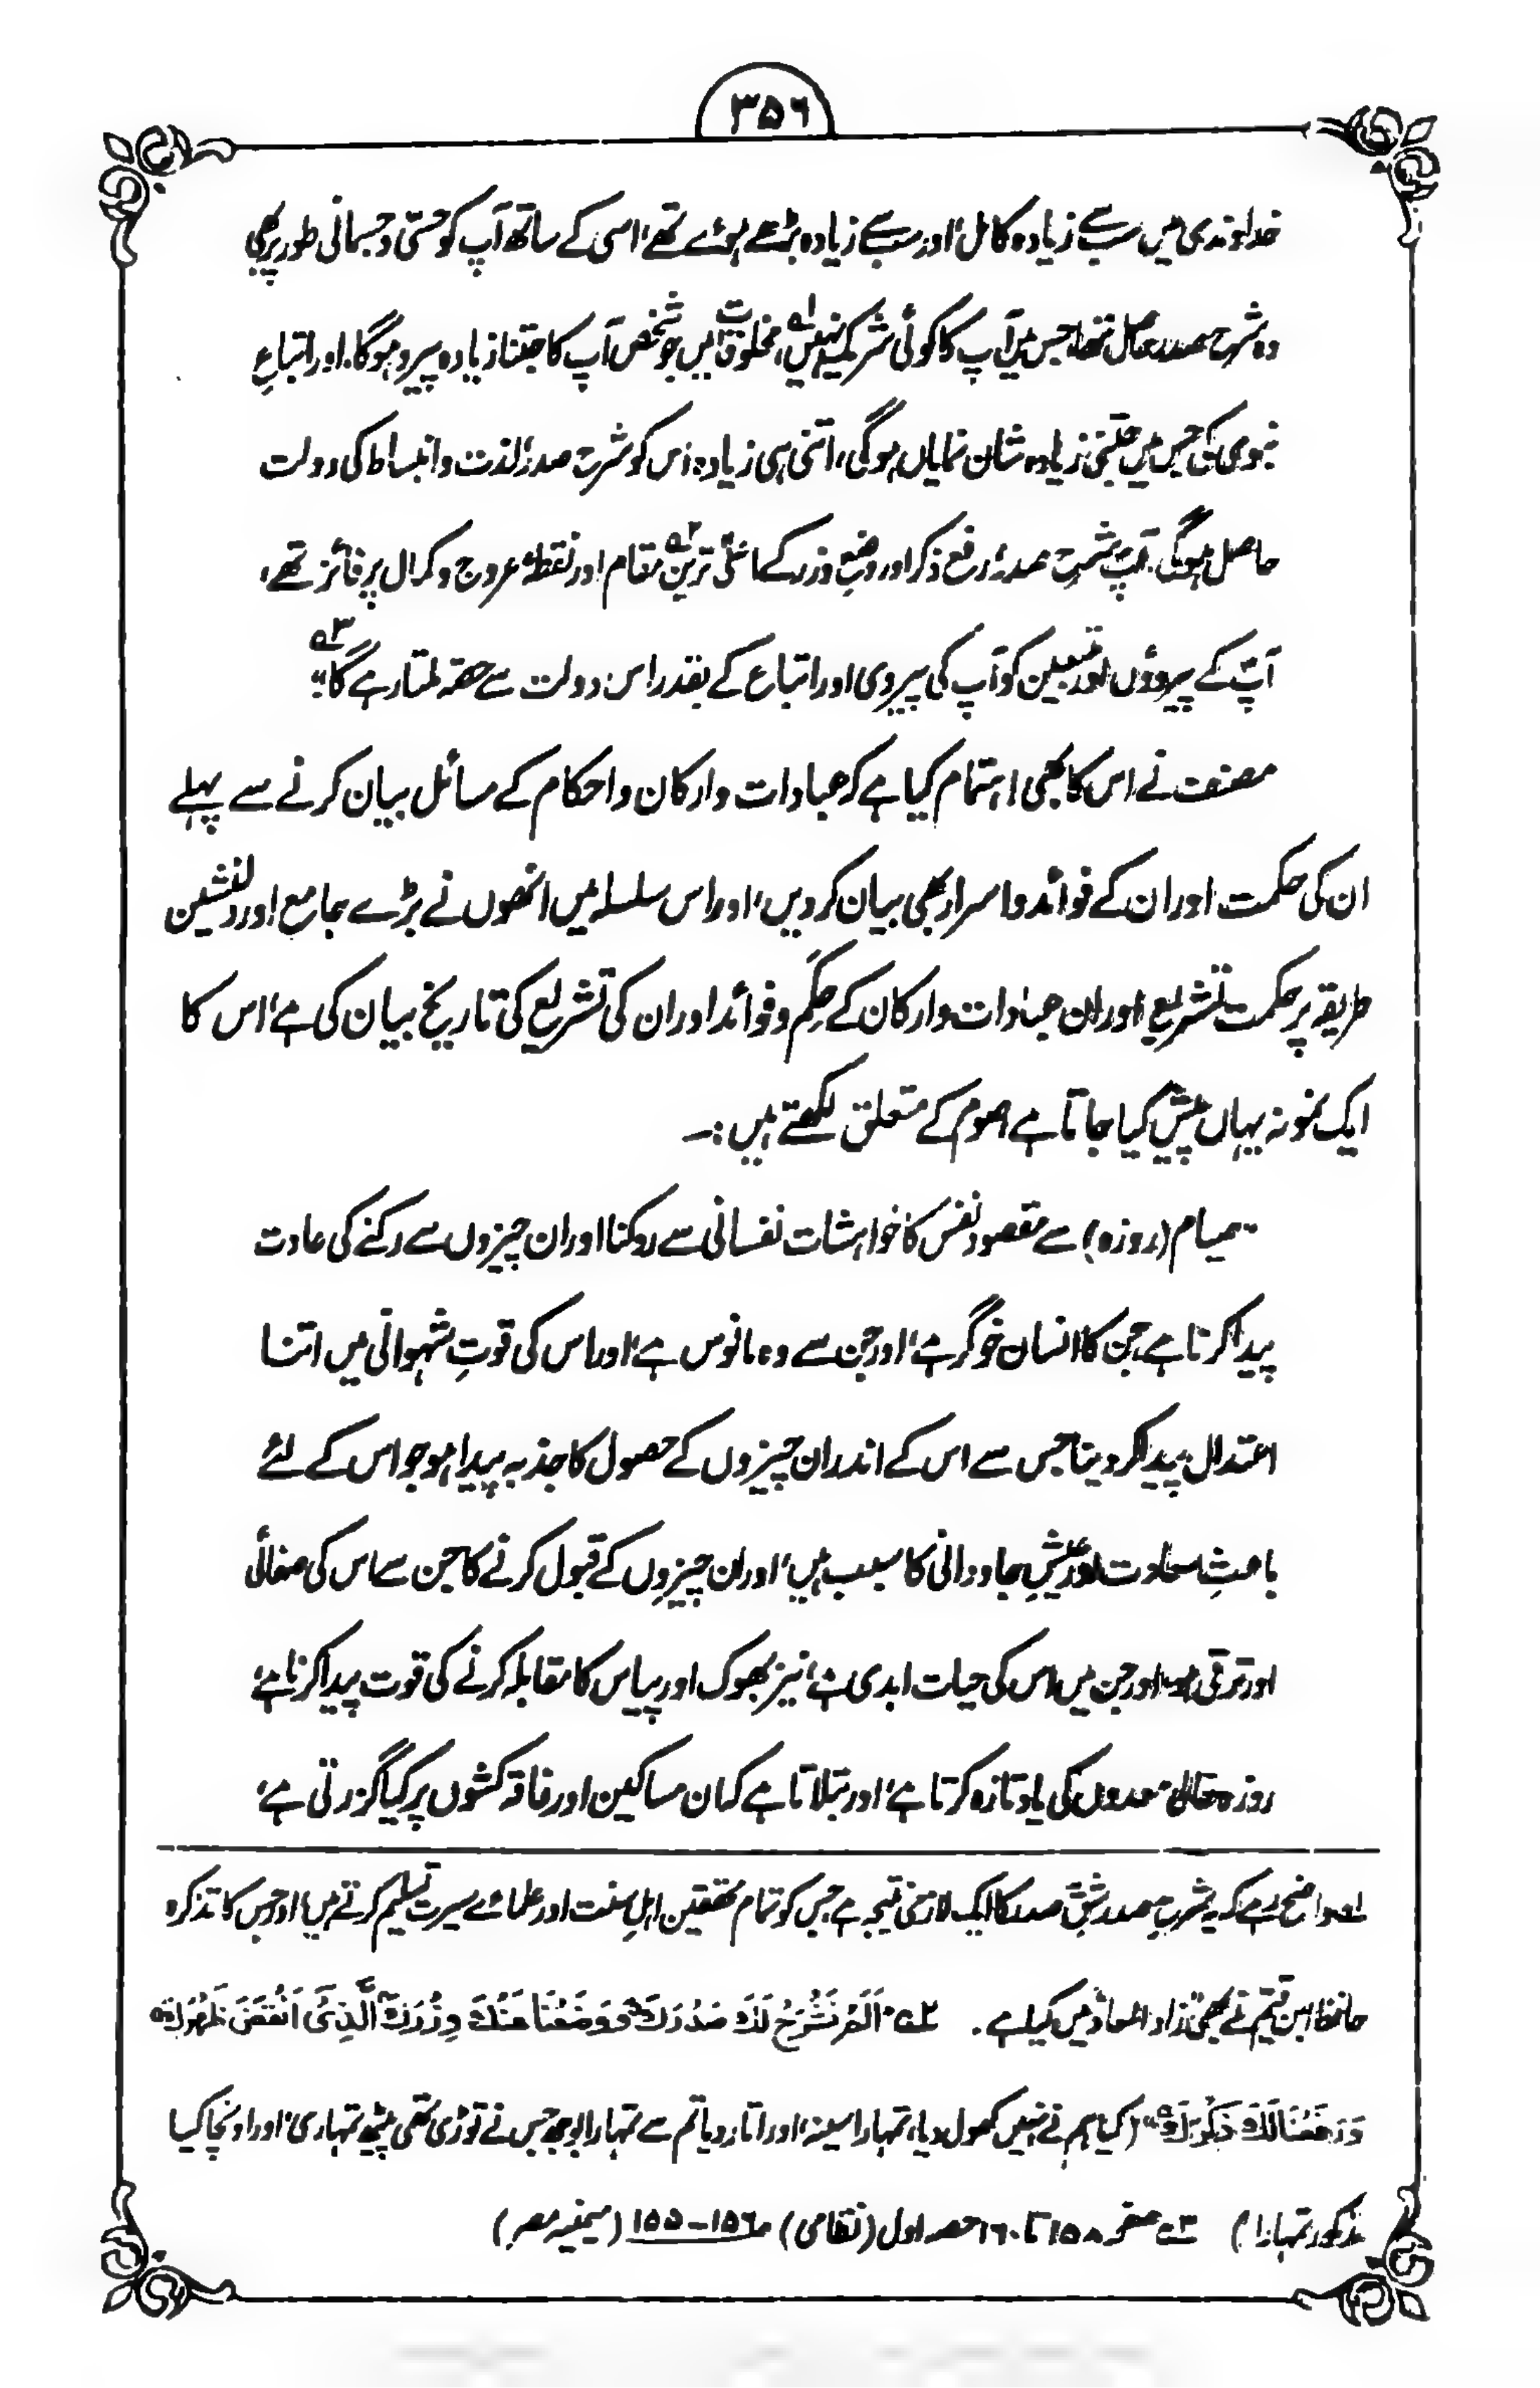 ۳۵۶
خداوندی میں سب سے زیادہ کامل، اور سب سے زیادہ بڑھے ہوئے تھے، اسی کے ساتھ آپ کو حسّی و جسمانی طور پر بھی
وہ شرح صدر حاصل تھا، جس میں آپ کا کوئی شریک نہیں لہ، مخلوقات میں جو شخص آپ کا جتنا زیادہ پیرو ہوگا، اور اتباعِ
نبوی کی جس میں جتنی زیادہ شان نمایاں ہوگی، اتنی ہی زیادہ اس کو شرح صدر، لذت و انبساط کی دولت
حاصل ہوگی، آپ شرح صدر، رفع ذکر اور وضع وزر کے اعلیٰ ترین ۲ہ مقام اور نقطۂ عروج و کمال پر فائز تھے،
آپ کے پیروؤں اور متبعین کو آپ کی پیروی اور اتباع کے بقدر اس دولت سے حصّہ ملتا رہے گا" ۳ہ
مصنف نے اس کا بھی اہتمام کیا ہے کہ عبادات و ارکان و احکام کے مسائل بیان کرنے سے پہلے
ان کی حکمت اور ان کے فوائد و اسرار بھی بیان کردیں، اور اس سلسلہ میں انھوں نے بڑے جامع اور دلنشین
طریقہ پر حکمت تشریع اور ان عبادات و ارکان کے حِکَم و فوائد اور ان کی تشریع کی تاریخ بیان کی ہے، اس کا
ایک نمونہ یہاں پیش کیا جاتا ہے، صوم کے متعلق لکھتے ہیں :۔
"صیام (روزہ) سے مقصود نفس کا خواہشات نفسانی سے روکنا اور ان چیزوں سے رکنے کی عادت
پیدا کرنا ہے جن کا انسان خوگر ہے، اور جن سے وہ مانوس ہے، اور اس کی قوتِ شہوانی میں اتنا
اعتدال پیدا کر دینا جس سے اس کے اندر ان چیزوں کے حصول کا جذبہ پیدا ہو جو اس کے لئے
باعثِ سعادت اور عیشِ جاودانی کا سبب ہیں، اور ان چیزوں کے قبول کرنے کا جن سے اس کی صفائی
اور ترقی ہو، اور جن میں اس کی حیات ابدی ہے، نیز بھوک اور پیاس کا مقابلہ کرنے کی قوت پیدا کرنا ہے،
روزہ معدوں کی یاد تازہ کرتا ہے، اور بتلاتا ہے کہ ان مساکین اور فاقہ کشوں پر کیا گزرتی ہے،
لہ واضح رہے کہ یہ شرحِ صدر شقّ صدر کا ایک لازمی نتیجہ ہے جس کو تمام محققین اہلِ سنت اور علمائے سیرت تسلیم کرتے ہیں، اور جس کا تذکرہ
حافظ ابن قیّم نے بھی "زاد المعاد" میں کیا ہے۔ ۲ہ "اَلَمْ نَشْرَحْ لَكَ صَدْرَكَ وَوَضَعْنَا عَنْكَ وِزْرَكَ الَّذِیْ اَنْقَضَ ظَهْرَكَ
وَرَفَعْنَا لَكَ ذِكْرَكَ" (کیا ہم نے نہیں کھول دیا، تمہارا سینہ، اور اتار دیا تم سے تمہارا بوجھ جس نے توڑ دی تھی پیٹھ تمہاری، اور اونچا کیا
مذکور تمہارا) ۳ہ صفحہ ۱۵۸ تا ۱۶۰ حصہ اول (نظامی) ۱۵۶-۱۵۵ (میمنیہ مصر)